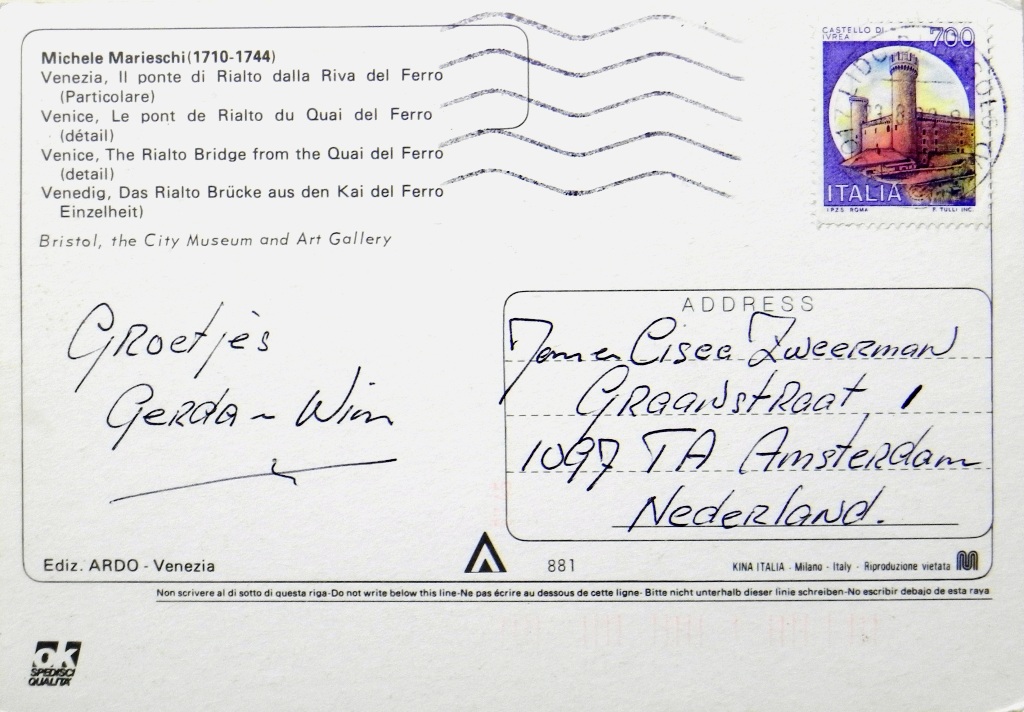 Michele Marieschi(1710-1744)
Venezia, Il ponte di Rialto dalla Riva del Ferro
(Particolare)
Venice, Le pont de Rialto du Quai del Ferro
(détail)
Venice, The Rialto Bridge from the Quai del Ferro
(detail)
Venedig, Das Rialto Brücke aus den Kai del Ferro
Einzelheit)
Bristol, the City Museum and Art Gallery
CASTELLO DI
IVREA
700
ITALIA
I.P.Z.S. ROMA F. TULLI INC.
Groetjes
Gerda - Wim
ADDRESS
Zweerman
Graanstraat 1
1097 TA Amsterdam
Nederland.
Ediz. ARDO - Venezia
881
KINA ITALIA - Milano - Italy - Riproduzione vietata
Non scrivere al di sotto di questa riga-Do not write below this line-Ne pas écrire au dessous de cette ligne- Bitte nicht unterhalb dieser linie schreiben-No escribir debajo de esta raya
ok
SPEDISCI
QUALITA'